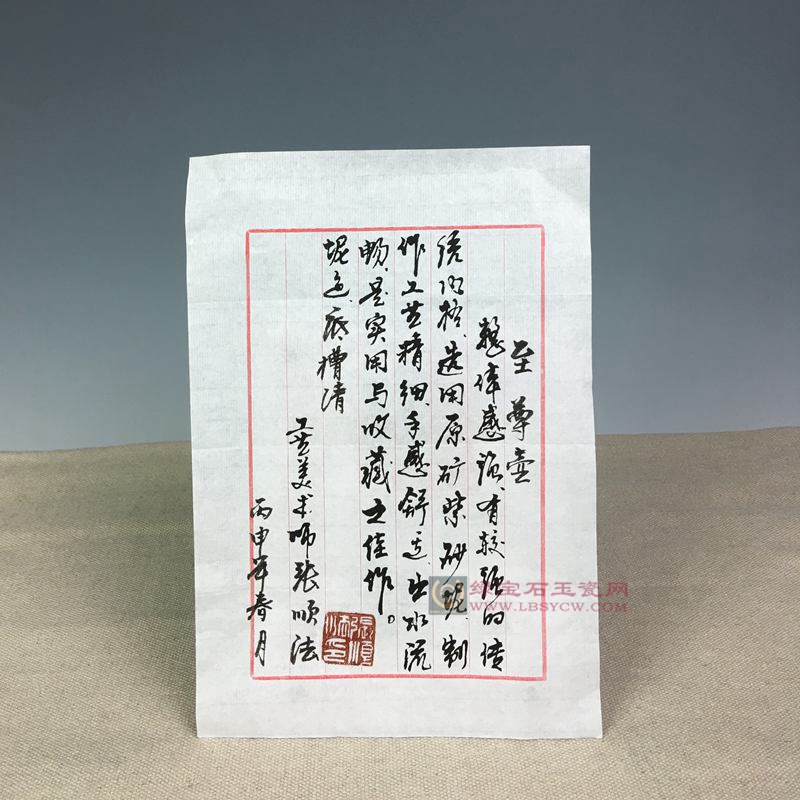 至尊壶
整体感强、有较强的传
统风格、选用原矿紫砂泥、制
作工艺精细、手感舒适、出水流
畅、是实用与收藏之佳作。
泥色、底槽清
工艺美术师张顺法
丙申年春月
张顺法印
绿宝石玉瓷网
WWW.LBSYCW.COM